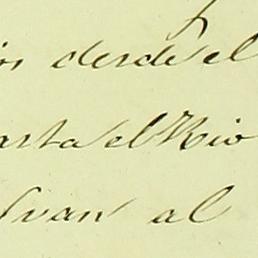 desde el
asta el Rio
Juan al